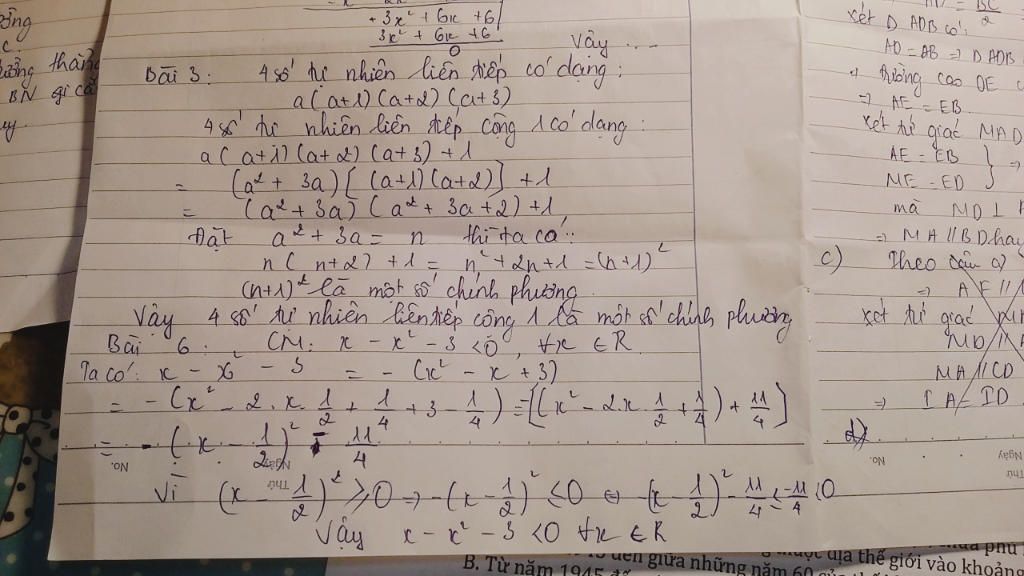 + 3x² + 6x + 6
3x² + 6x + 6
0
Vậy ...
Bài 3: 4 số tự nhiên liên tiếp có dạng:
a(a+1)(a+2)(a+3)
4 số tự nhiên liên tiếp cộng 1 có dạng:
a(a+1)(a+2)(a+3)+1
= (a² + 3a)[(a+1)(a+2)] +1
= (a² + 3a)(a² + 3a + 2) + 1
Đặt a² + 3a = n thì ta có:
n(n+2) + 1 = n² + 2n + 1 = (n+1)²
(n+1)² là một số chính phương.
Vậy 4 số tự nhiên liên tiếp cộng 1 là một số chính phương
Bài 6: CM: x - x² - 3 < 0, ∀x ∈ R
Ta có: x - x² - 3 = - (x² - x + 3)
= - (x² - 2.x.1/2 + 1/4 + 3 - 1/4) = -[(x² - 2x.1/2 + 1/4) + 11/4]
= - (x - 1/2)² - 11/4
No.
Thứ
Ngày
Vì (x - 1/2)² ≥ 0 ⇒ -(x - 1/2)² ≤ 0 ⇔ -(x - 1/2)² - 11/4 ≤ -11/4 < 0
Vậy x - x² - 3 < 0 ∀x ∈ R
BC/2
xét D ADB có:
AD = AB ⇒ D ADB
⇒ Đường cao DE
⇒ AE = EB
xét tứ giác MAD
AE = EB
ME = ED
} ⇒
mà MD ⊥
⇒ MA // BD hay
c) Theo câu a)
⇒ AE //
xét tứ giác
MD //
MA // CD
⇒ IA = ID
d)
No.
Thứ
Ngày
B. Từ năm 1945
đến giữa những năm 60
địa thế giới vào khoảng